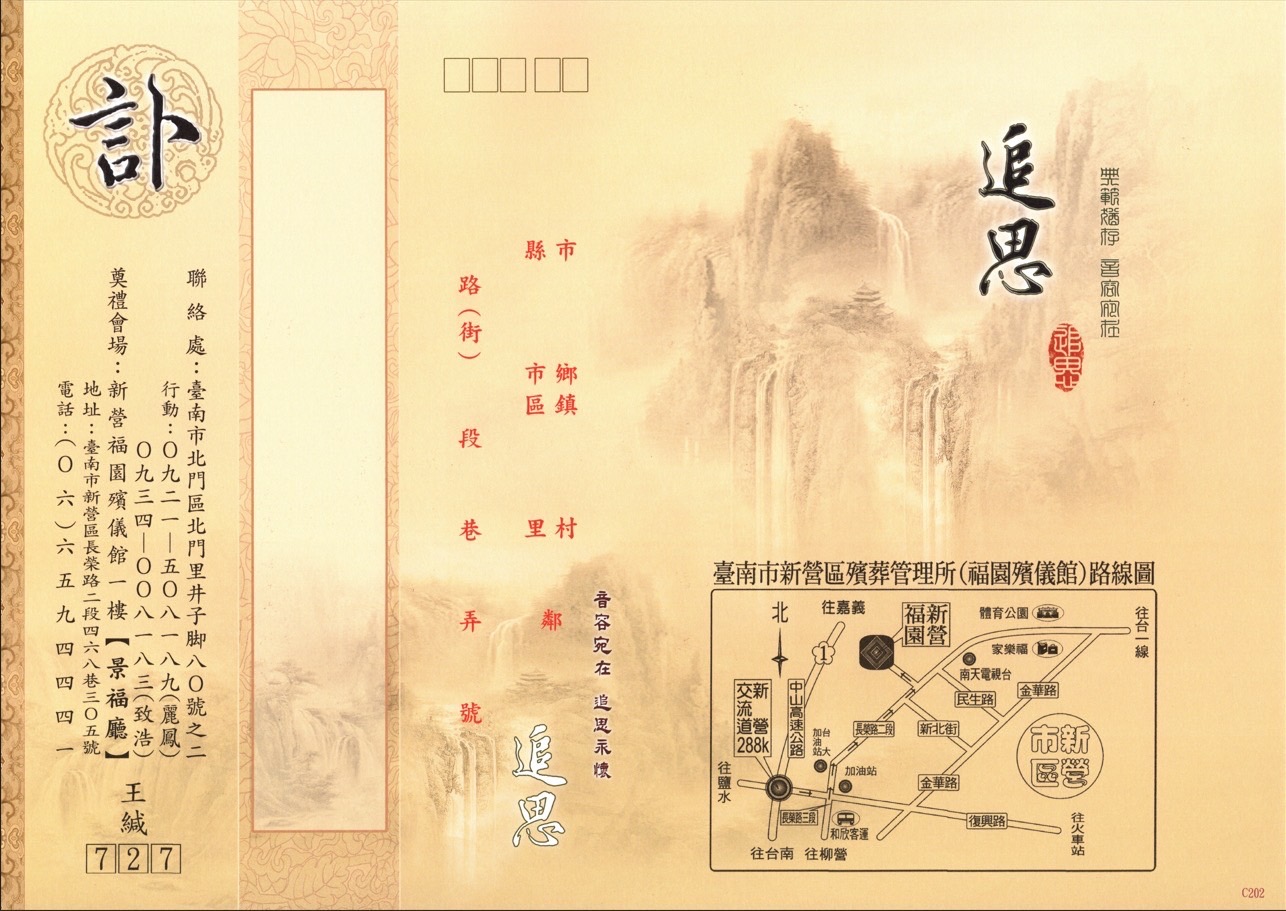 典範猶存 音容宛在
追思
追思
臺南市新營區殯葬管理所(福園殯儀館)路線圖
北
往嘉義
1
新營福園
體育公園
家樂福
往台一線
南天電視台
民生路
金華路
新營交流道288k
中山高速公路
長榮路二段
新北街
新營市區
加油站
台大
加油站
往鹽水
金華路
長榮路三段
和欣客運
復興路
往火車站
往台南
往柳營
C202
音容宛在 追思永懷
追思
市 鄉鎮 村
縣 市區 里 鄰
路(街) 段 巷 弄 號
訃
聯絡處:臺南市北門區北門里井子脚八〇號之二
行動:〇九二一—五〇八一八九(麗鳳)
〇九三四—〇〇八一八三(致浩)
奠禮會場:新營福園殯儀館一樓【景福廳】
地址:臺南市新營區長榮路二段四六八巷三〇五號
電話:(〇六)六五九四四四一
王緘
727